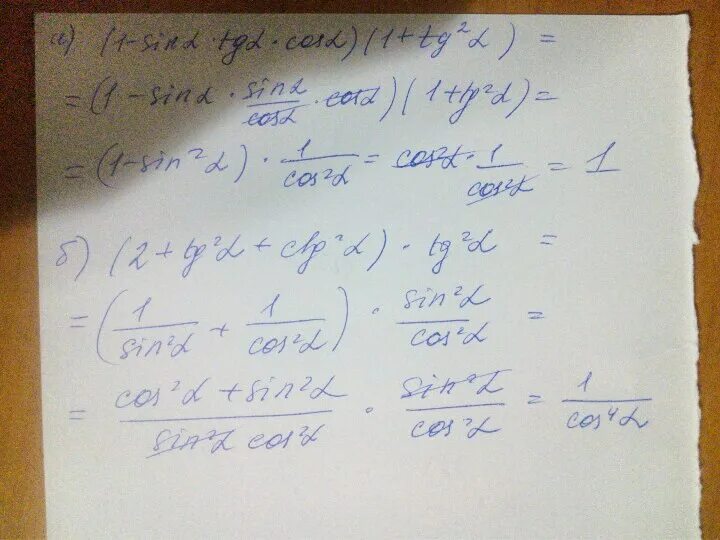 а) (1-sinα·tgα·cosα)(1+tg²α) =
= (1-sinα · sinα/cosα · cosα)(1+tg²α) =
= (1-sin²α) · 1/cos²α = cos²α · 1/cos²α = 1
б) (2+tg²α+ctg²α) · tg²α =
= (1/sin²α + 1/cos²α) · sin²α/cos²α =
= cos²α+sin²α/sin²α cos²α · sin²α/cos²α = 1/cos⁴α